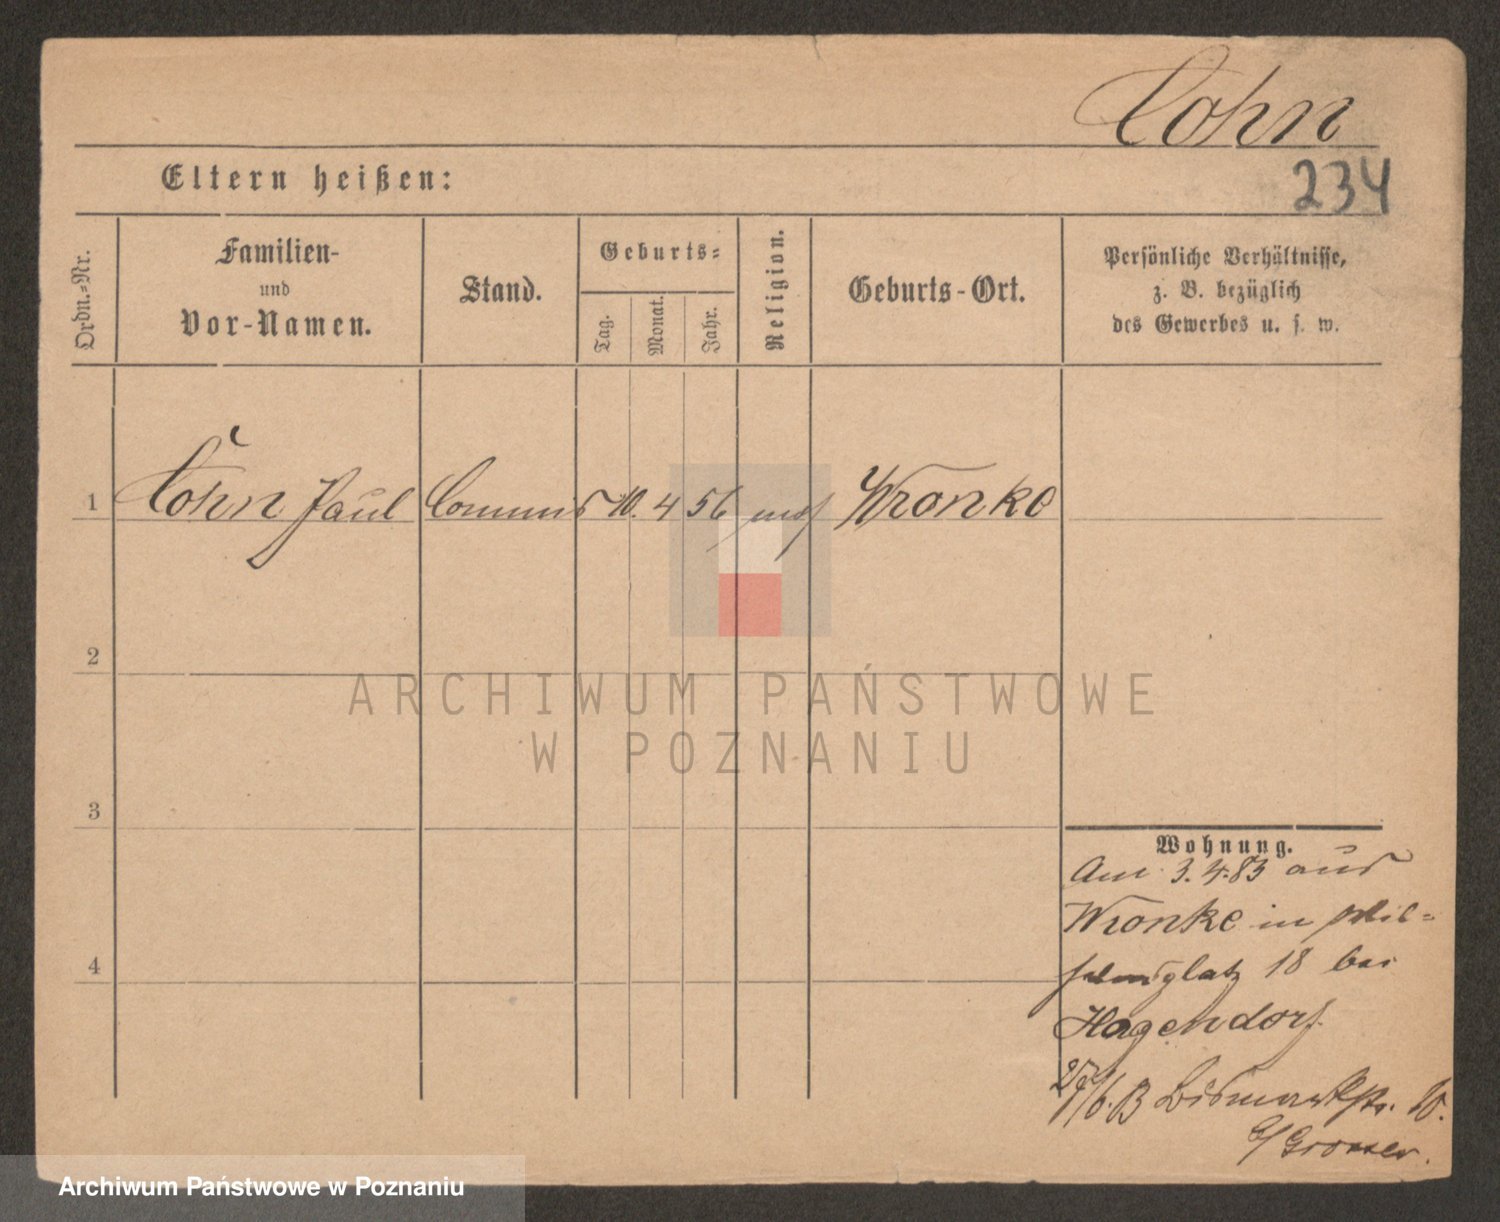 Cohn
Eltern heißen:
234
Ordn.=Nr.
Familien-
und
Vor-Namen.
Stand.
Geburts=
Tag.
Monat.
Jahr.
Religion.
Geburts-Ort.
Persönliche Verhältnisse,
z. B. bezüglich
des Gewerbes u. s. w.
1 Cohn Paul Commis 10. 4 56 mos Wronke
2
3
4
ARCHIWUM PAŃSTWOWE
W POZNANIU
Wohnung.
Am 3.4.83 aus
Wronke in Wil=
helmsplatz 18 bei
Hagendorf
27/6. 83 Bismarckstr. 10.
b/ Grosser.
Archiwum Państwowe w Poznaniu